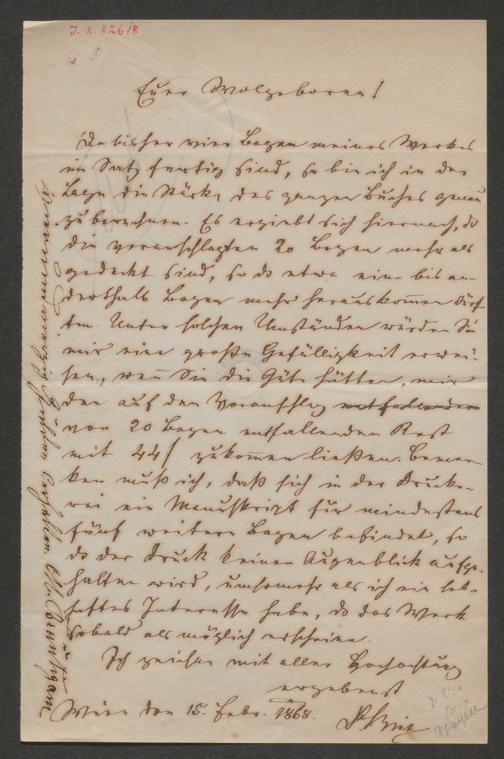 I. N. 82618
Euer Wolgeboren!
Da bisher vier Bogen meines Werkes
im Satz fertig sind, so bin ich in der
Lage die Stärke des ganzen Buches genau
zu berechnen. Es ergiebt sich hiernach, daß
die veranschlagten 20 Bogen mehr als
gedeckt sind, so daß etwa ein bis an-
derthalb Bogen mehr herauskommen dürf-
ten. Unter solchen Umständen würden Sie
mir eine große Gefälligkeit erwei-
sen, wenn Sie die Güte hätten, mir
den auf den Voranschlag entfallenden
von 20 Bogen entfallenden Rest
mit 44 f zukommen ließen. Bemer-
ken muß ich, daß sich in der Drucke-
rei ein Manuskript für mindestens
fünf weitere Bogen befindet, so
daß der Druck keinen Augenblick aufge-
halten wird, umsomehr als ich ein leb-
haftes Interesse habe, daß das Werk
sobald als möglich erscheine.
Ich zeichne mit aller Hochachtung
ergebenst
Wien den 15. Febr. 1868.